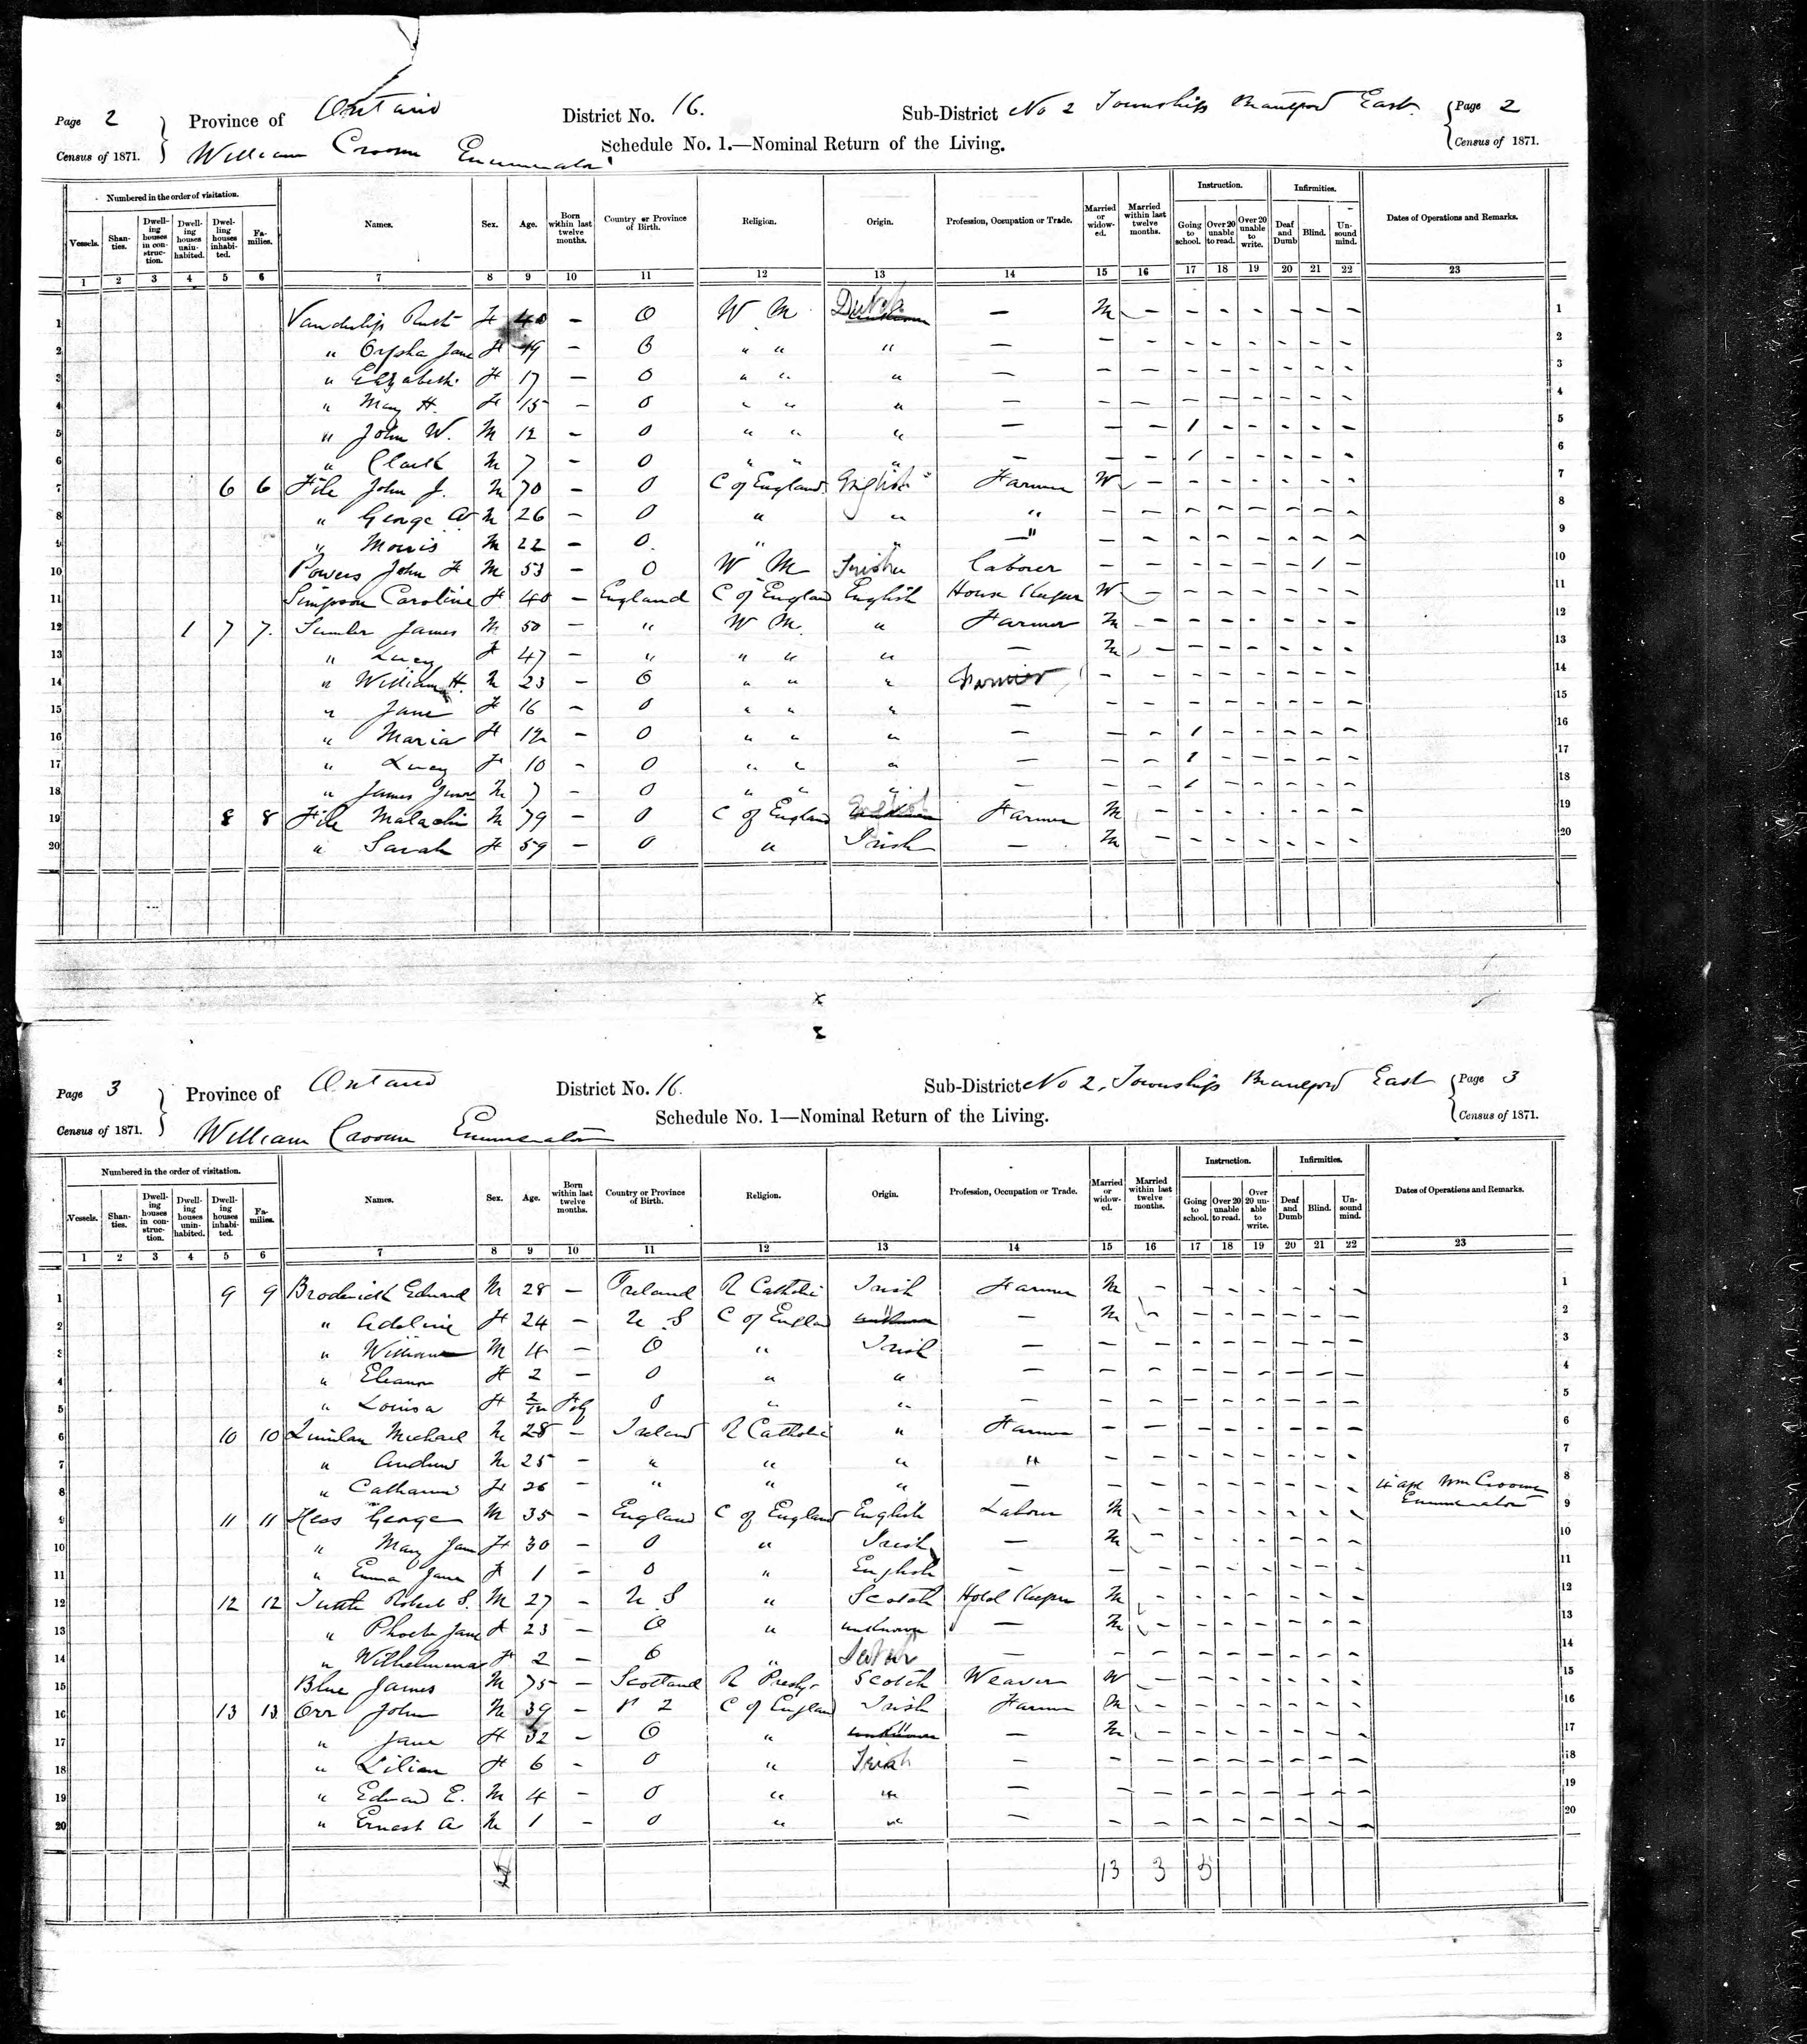 Page 2 Province of Ontario District No. 16. Sub-District No 2 Township Brantford East. Page 2
Census of 1871. William Croome Enumerator Schedule No. 1.—Nominal Return of the Living. Census of 1871.
Numbered in the order of visitation. Instruction. Infirmities.
Vessels. Shanties. Dwelling houses in construction. Dwelling houses uninhabited. Dwelling houses inhabited. Families. Names. Sex. Age. Born within last twelve months. Country or Province of Birth. Religion. Origin. Profession, Occupation or Trade. Married or widowed. Married within last twelve months. Going to school. Over 20 unable to read. Over 20 unable to write. Deaf and Dumb Blind. Unsound mind. Dates of Operations and Remarks.
1 2 3 4 5 6 7 8 9 10 11 12 13 14 15 16 17 18 19 20 21 22 23
1 Vanderlip F 40 – O W M Dutch – M – – – – – – – 1
2 " Orpha Jane F 19 – O " " " – – – – – – – – – 2
3 " Elizabeth F 17 – O " " " – – – – – – – – – 3
4 " Mary H. F 15 – O " " " – – – – – – – – – 4
5 " John W. M 12 – O " " " – – – 1 – – – – – 5
6 " Clark M 7 – O " " " – – – 1 – – – – – 6
7 6 6 File John J. M 70 – O C of England English Farmer W – – – – – – – 7
8 " George A. M 26 – O " " " – – – – – – – – 8
9 " Morris M 22 – O " " " – – – – – – – – 9
10 Powers John F M 53 – O W M Irish Laborer – – – – – – 1 – 10
11 Simpson Caroline F 40 – England C of England English House Keeper W – – – – – – – 11
12 1 7 7 James M 50 – " W M " Farmer M – – – – – – – 12
13 " Lucy F 47 – " " " " – M – – – – – – – 13
14 " William H. M 23 – O " " " Farmer – – – – – – – – 14
15 " Jane F 16 – O " " " – – – – – – – – – 15
16 " Maria F 12 – O " " " – – – 1 – – – – – 16
17 " Lucy F 10 – O " " " – – – 1 – – – – – 17
18 " James Junr M 7 – O " " " – – – 1 – – – – – 18
19 8 8 File Malachi M 79 – O C of England English Farmer M – – – – – – – 19
20 " Sarah F 59 – O " Irish – M – – – – – – – 20
Page 3 Province of Ontario District No. 16. Sub-District No 2, Township Brantford East Page 3
Census of 1871. William Croome Enumerator Schedule No. 1—Nominal Return of the Living. Census of 1871.
Numbered in the order of visitation. Instruction. Infirmities.
Vessels. Shanties. Dwelling houses in construction. Dwelling houses uninhabited. Dwelling houses inhabited. Families. Names. Sex. Age. Born within last twelve months. Country or Province of Birth. Religion. Origin. Profession, Occupation or Trade. Married or widowed. Married within last twelve months. Going to school. Over 20 unable to read. Over 20 unable to write. Deaf and Dumb Blind. Unsound mind. Dates of Operations and Remarks.
1 2 3 4 5 6 7 8 9 10 11 12 13 14 15 16 17 18 19 20 21 22 23
1 9 9 Broderick Edward M 28 – Ireland R Catholic Irish Farmer M – – – – – – – 1
2 " Adeline F 24 – U S C of England " – M – – – – – – – 2
3 " William M 4 – O " Irish – – – – – – – – – 3
4 " Eleanor F 2 – O " " – – – – – – – – – 4
5 " Louisa F 2/12 Feby O " " – – – – – – – – – 5
6 10 10 Quinlan Michael M 28 – Ireland R Catholic " Farmer – – – – – – – – 6
7 " Andrew M 25 – " " " " – – – – – – – – 7
8 " Catharine F 26 – " " " – – – – – – – – – Wm Croome 8
9 11 11 Hess George M 35 – England C of England English Labourer M – – – – – – – Enumerator 9
10 " Mary Jane F 30 – O " Irish – M – – – – – – – 10
11 " Emma Jane F 1 – O " English – – – – – – – – – 11
12 12 12 Robert S. M 27 – U S " Scotch Hotel Keeper M – – – – – – – 12
13 " Phoebe Jane F 23 – O " unknown – M – – – – – – – 13
14 " Wilhelmina F 2 – O " – – – – – – – – – 14
15 Blue James M 75 – Scotland R Presby. Scotch Weaver W – – – – – – – 15
16 13 13 Orr John M 39 – C of England Irish Farmer M – – – – – – – 16
17 " Jane F 32 – O " " – M – – – – – – – 17
18 " Lilian F 6 – O " Irish – – – – – – – – – 18
19 " Edward E. M 4 – O " " – – – – – – – – – 19
20 " Ernest A M 1 – O " " – – – – – – – – – 20
13 3 5